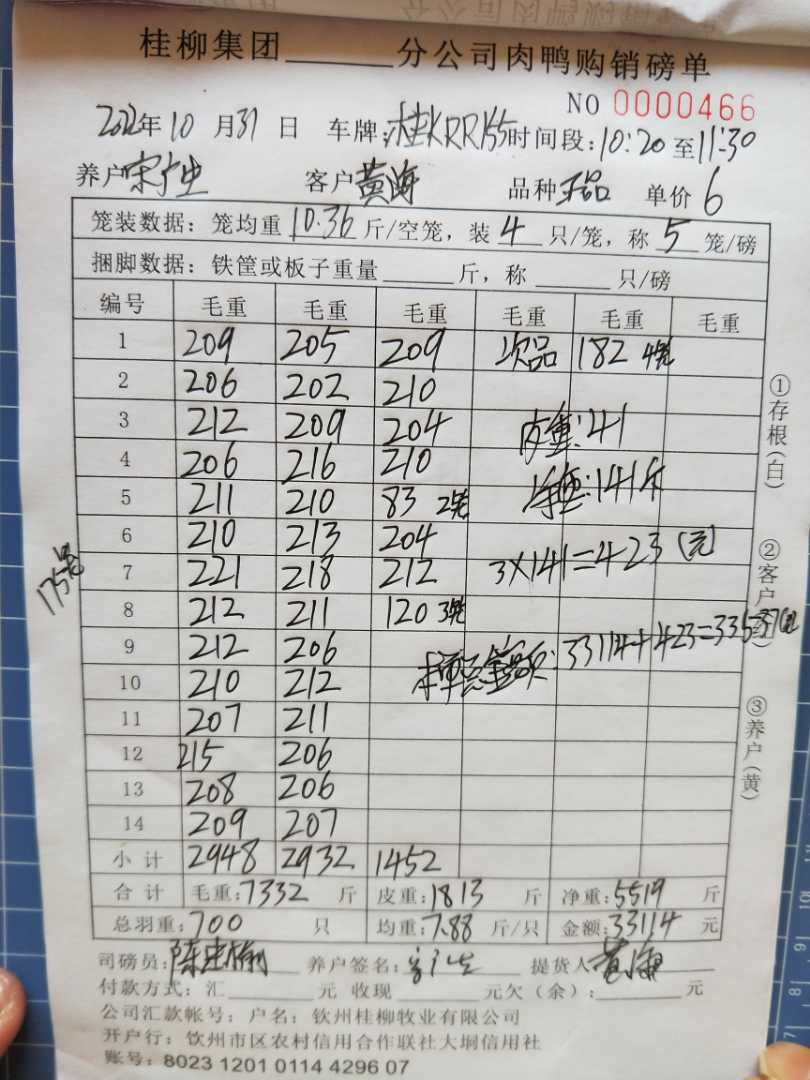 桂柳集团______分公司肉鸭购销磅单
NO 0000466
2022年10月31日 车牌:桂KRR155 时间段:10:20至11:30
养户 宋广生 客户 黄海 品种 正品 单价 6
笼装数据: 笼均重 10.36 斤/空笼, 装 4 只/笼, 称 5 笼/磅
捆脚数据: 铁筐或板子重量______斤, 称______只/磅
编号 毛重 毛重 毛重 毛重 毛重 毛重
1 209 205 209 次品 182 4笼
2 206 202 210
3 212 209 204 皮重:41
4 206 216 210
5 211 210 83 2笼 净重:141斤
6 210 213 204
7 221 218 212 3×141=423(元)
8 212 211 120 3笼
9 212 206
10 210 212 本车总金额:33114+423=33537元
11 207 211
12 215 206
13 208 206
14 209 207
小计 2948 2932 1452
合计 毛重:7332 斤 皮重:1813 斤 净重:5519 斤
总羽重:700 只 均重:7.88 斤/只 金额:33114 元
司磅员: 养户签名: 提货人 黄海
付款方式: 汇______元 收现______元欠(余):______元
公司汇款帐号: 户名: 钦州桂柳牧业有限公司
开户行: 钦州市区农村信用合作联社大垌信用社
账号: 8023 1201 0114 4296 07
175笼
①存根(白)
②客户
③养户(黄)